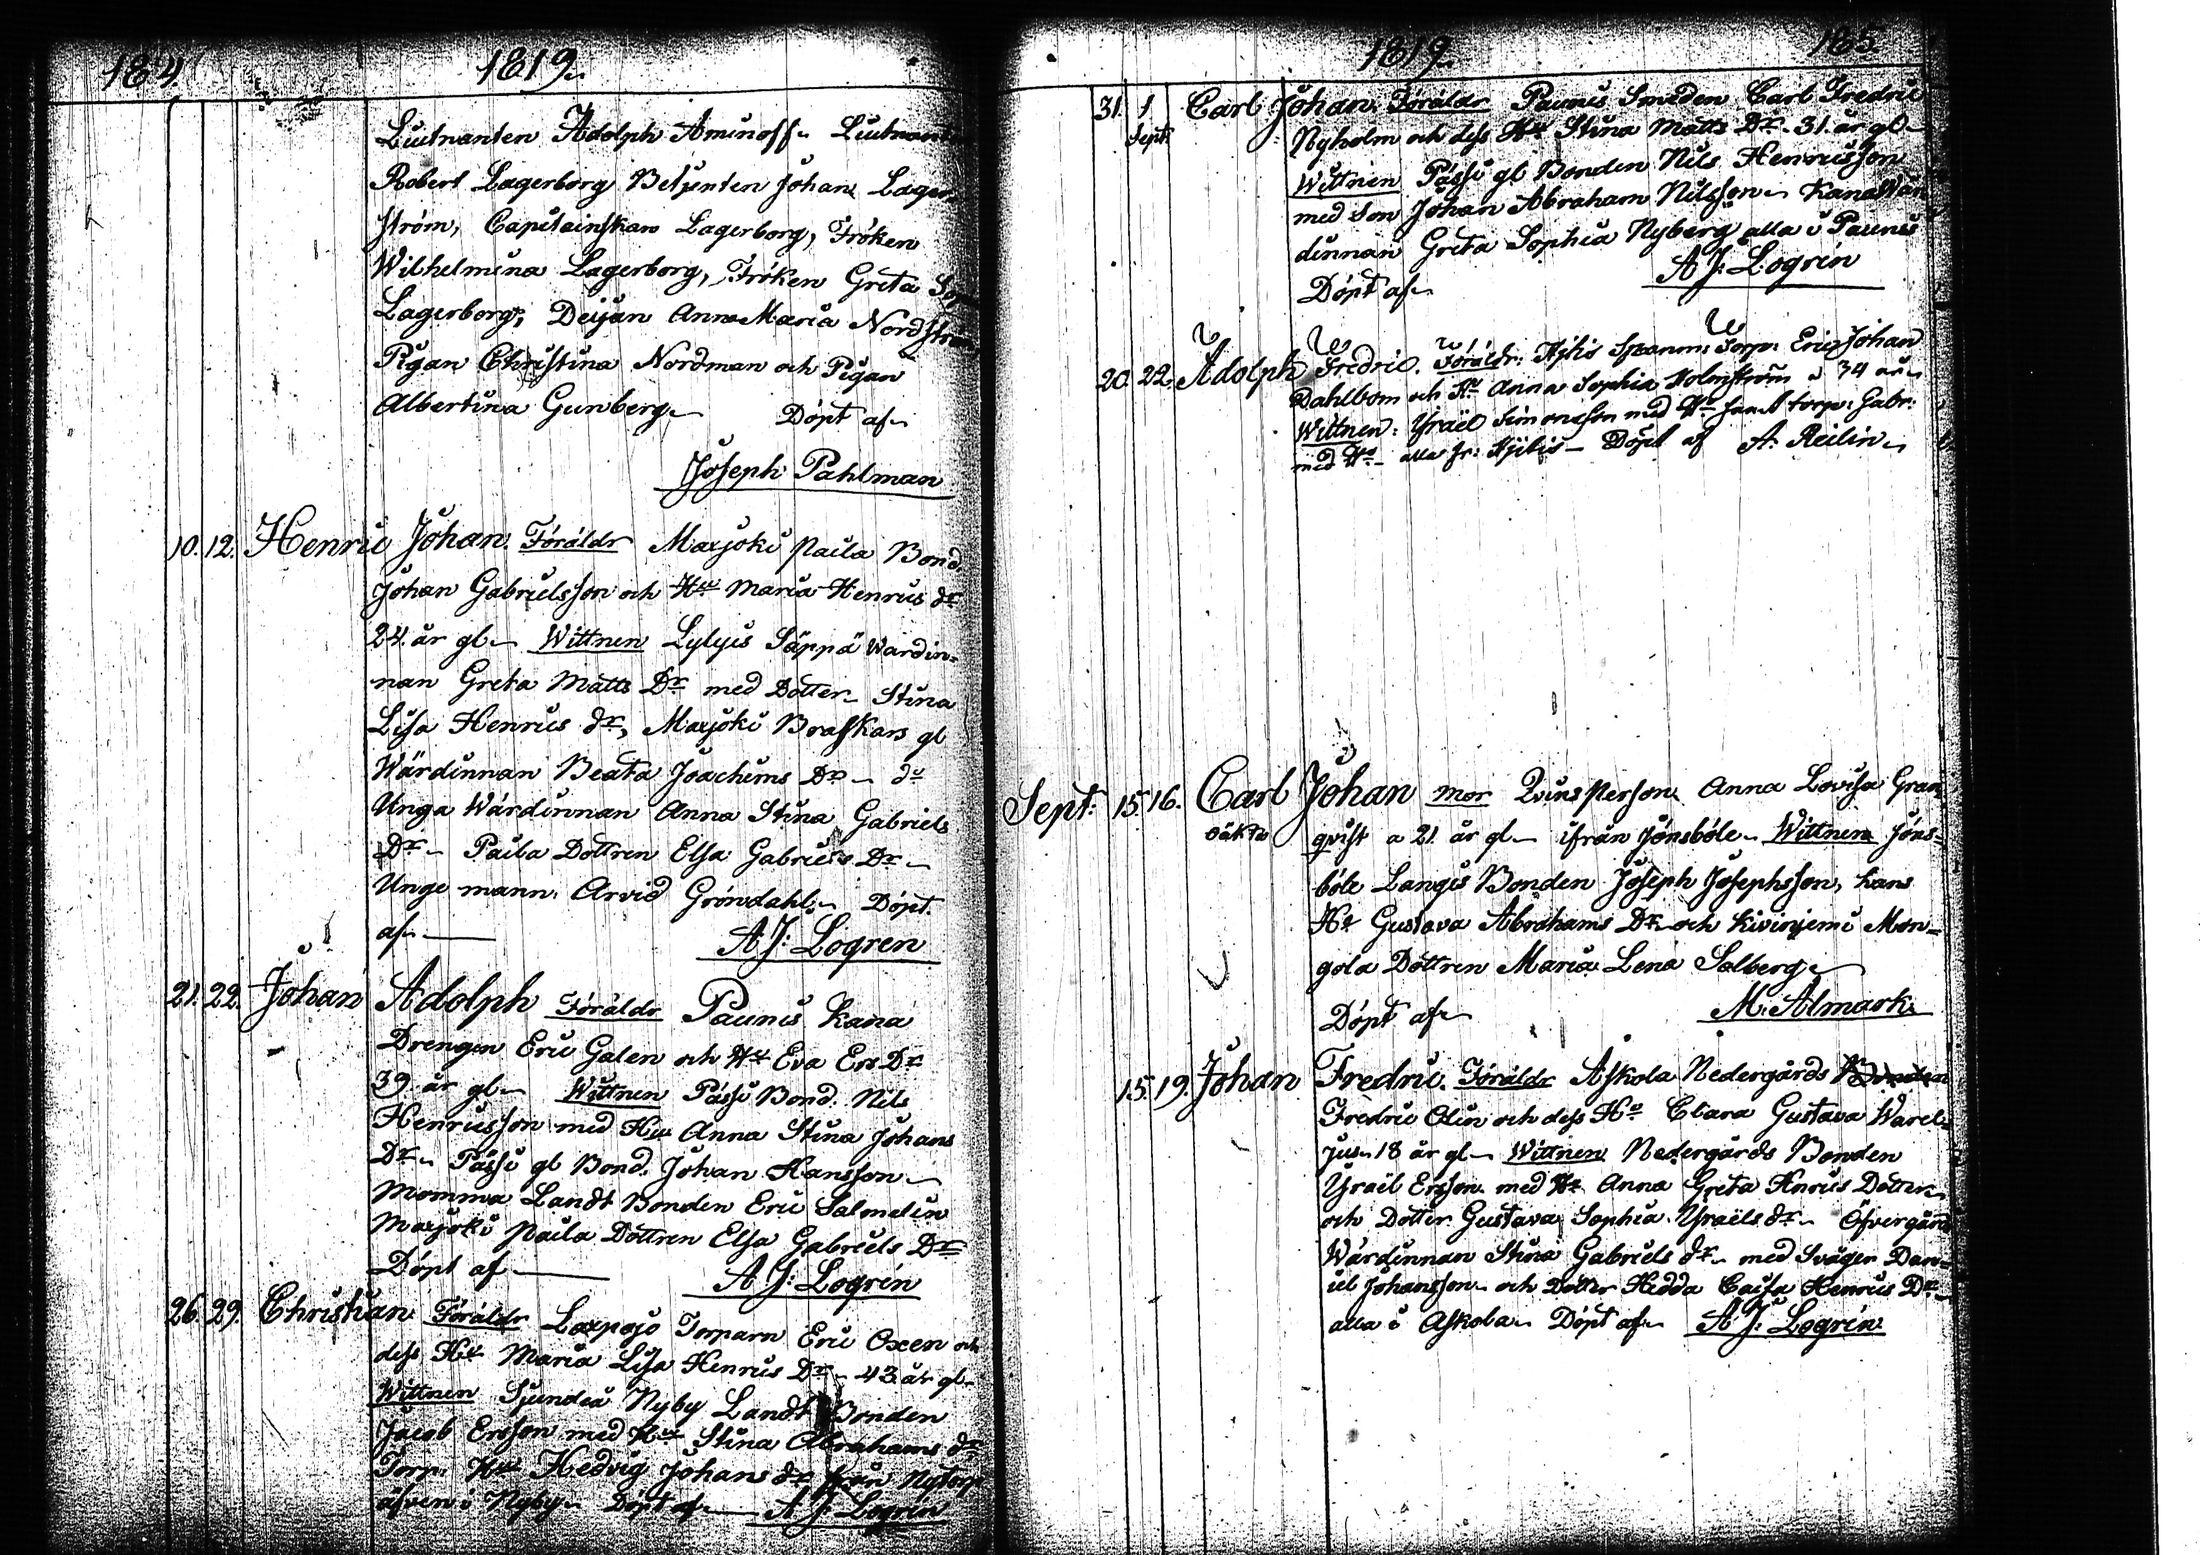 184.
1819.
Liutnanten Adolph Aminoff Liutnan
Robert Lagerborg Betjenten Johan Lager-
ström, Capitainskan Lagerborg, Fröken
Wilhelmina Lagerborg, Fröken Greta
Lagerborg, Dejan Anna Maria Nordström
Pigan Christina Nordman och Pigan
Albertina Gunberg Döpt af
Joseph Pahlman
10. 12. Henric Johan. Föräldr Marjoki Paila Bond.
Johan Gabrielsson och Hu Maria Henrics dr
24. år gl Wittnen Lylyis Säppä Wardin-
nan Greta Matts Dr med Dotter Stina
Lisa Henrics dr, Marjoki Braskars gl
Wärdinnan Beata Joachims Dr du
Unga Wärdinnan Anna Stina Gabriels
Dr Paila Dottren Elsa Gabriels Dr
Unge mann. Arvid Gröndahl Döpt.
af A J: Logren
21. 22. Johan Adolph Föräldr Paunis Kana
Drengen Eric Galen och Hu Eva Ers Dr
39. år gl Wittnen Pässi Bond. Nils
Henricsson med Hu Anna Stina Johans
Dr Pässi gl Bond. Johan Hansson
Momma Landt Bonden Eric Salmelin
Marjoki Paila Dottren Elsa Gabriels Dr
Döpt af A J: Logrén
26. 29. Christian Föräldr Laxpojo Torparn Eric Oxen och
dess Hu Maria Lisa Henrics Dr 43. år gl
Wittnen Sjundeå Nyby Landt Bonden
Jacob Ersson med Hu Stina Abrahams dr
Torp. Hu Hedvig Johans dr från Nytorp
äfven i Nyby Döpt af A J Logrén
1819.
185
31. 1 Carl Johan. Föräldr Paunis Smeden Carl Fredric
Sept. Nyholm och dess Hu Stina Matts Dr. 31. år gl
Wittnen Pässi gl Bonden Nils Henricsson
med Son Johan Abraham Nilsson Kana Wär-
dinnan Greta Sophia Nyberg alla i Paunis
Döpt af A J: Logrén
20. 22. Adolph Fredric. Föräldr: Hjtis Spanm: Torp. Eric Johan
Dahlbom och Hu Anna Sophia Holmström a 34 år
Wittnen: Israël Simonsson med Hu samt torp: Gabr:
med Hu alla fr: Hjitis Döpt af A. Reilin
Sept: 15. 16. Carl Johan mor Qvinsperson Anna Lovisa Gran-
oäkta qvist a 21 år gl ifrån Jönsböle Wittnen Jöns-
böle Langis Bonden Joseph Josephsson, hans
Hu Gustava Abrahams Dr och Kiviniemi Mon-
gola Dottren Maria Lena Salberg
Döpt af M. Almark.
15. 19. Johan Fredric. Föräldr Askola Nedergårds Bonden
Fredric Olin och dess Hu Clara Gustava Warel-
jus 18 år gl Wittnen Nedergårds Bonden
Israël Ersson med Hu Anna Greta Henrics Dotter
och Dotter Gustava Sophia Israëls dr Öfvergårds
Wärdinnan Stina Gabriels dr med Svåger Dan-
iel Johansson och Dotter Hedda Caisa Henrics Dr
alla i Askola Döpt af A J: Logrén